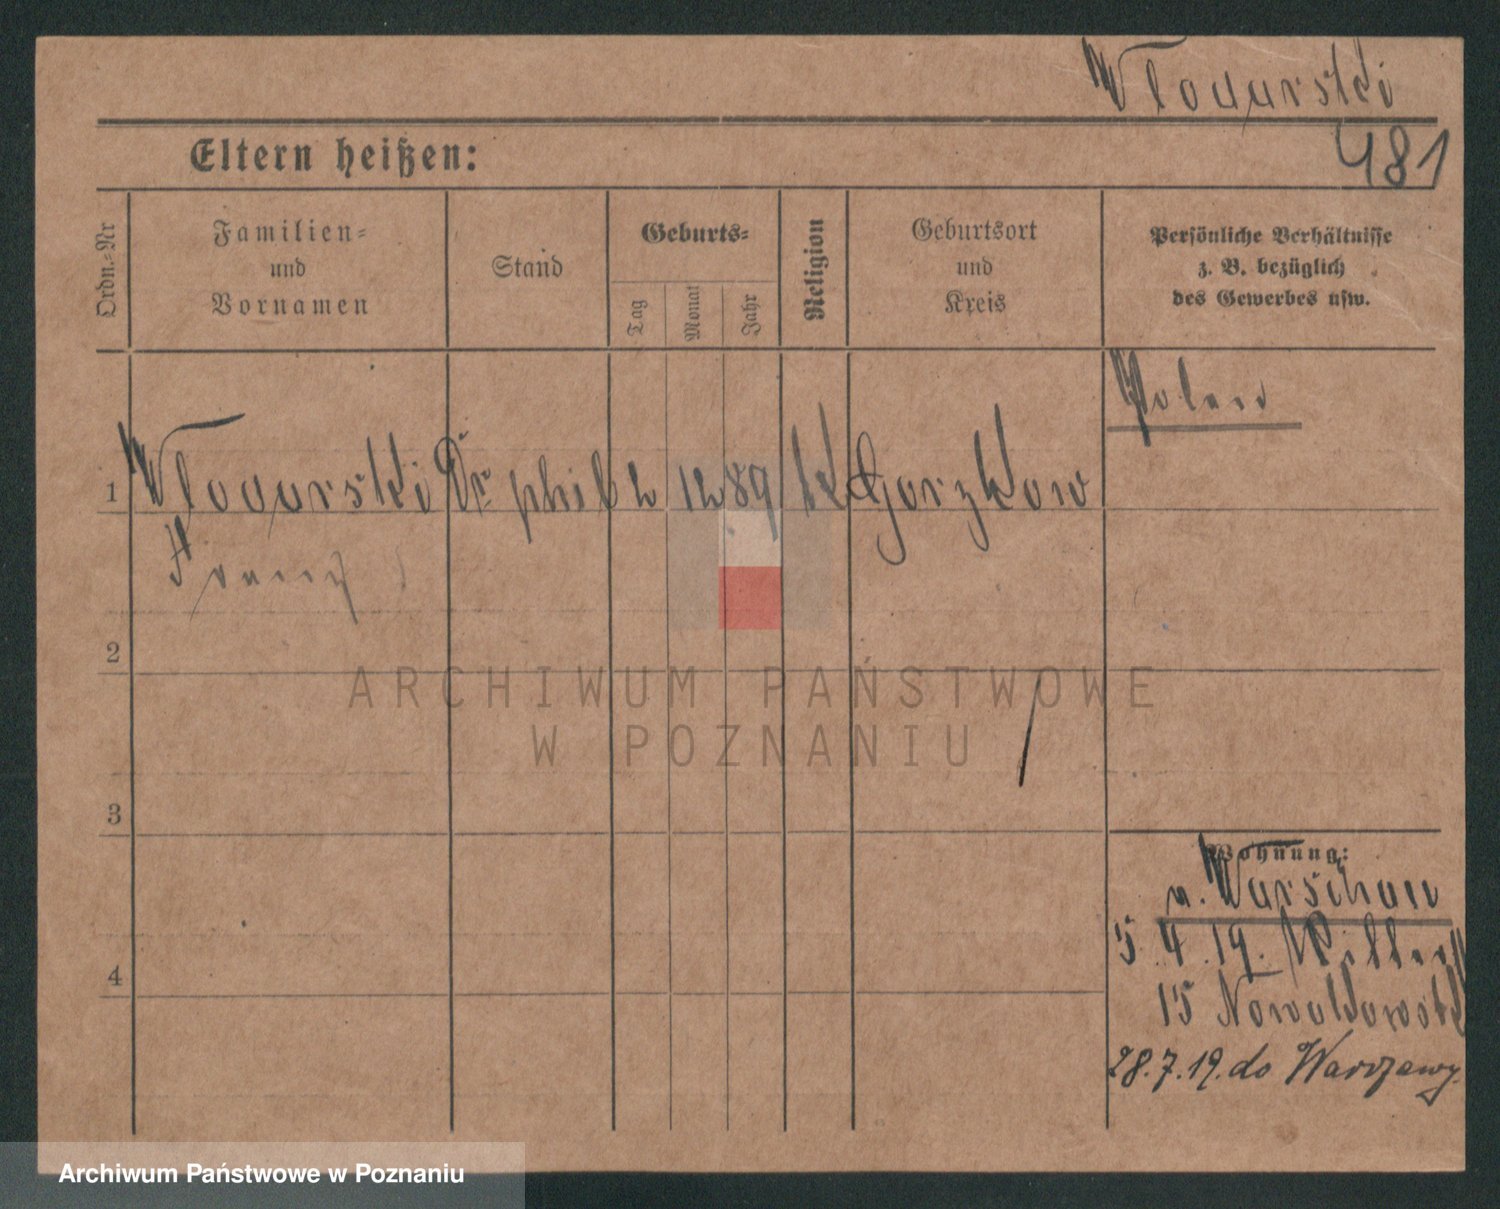 Wlodarski
Eltern heißen:
481
Ordn.-Nr
Familien-
und
Vornamen
Stand
Geburts-
Tag
Monat
Jahr
Religion
Geburtsort
und
Kreis
Persönliche Verhältnisse
z. B. bezüglich
des Gewerbes usw.
Polen
1
Wlodarski Dr phil 2 12 89 k Gorzkow
Franz
2
ARCHIWUM PAŃSTWOWE
W POZNANIU
3
Wohnung:
v. Warschau
4
15 4 19.
15
28.7.19. do Warszawy.
Archiwum Państwowe w Poznaniu